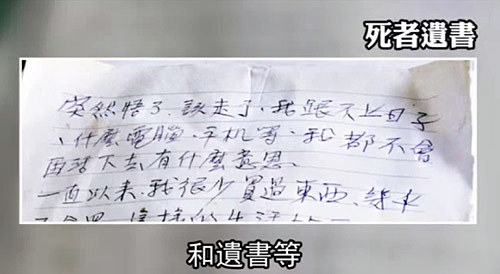 死者遺書
突然悟了、該走了、我跟不上日子
、什麼電腦、手机等、我都不會
再活下去有什麼意思。
一直以来、我很少買過東西、
和遺書等